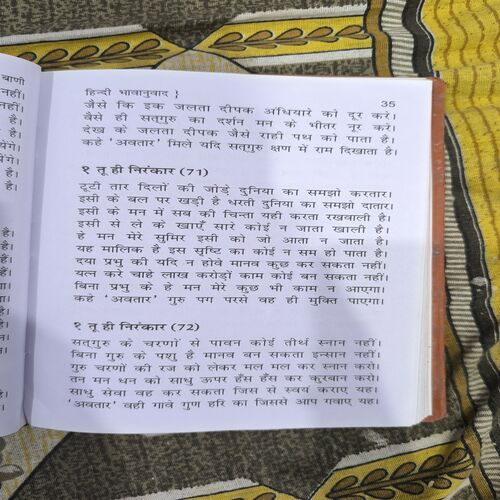 बाणी
नहीं।
नहीं।
है।
है।
येंगे।
येंगे।
है।
है।
हिन्दी भावानुवाद }
35
जैसे कि इक जलता दीपक अंधियारे को दूर करे।
वैसे ही सत्गुरु का दर्शन मन के भीतर नूर करे।
देख के जलता दीपक जैसे राही पथ को पाता है।
कहे 'अवतार' मिले यदि सत्गुरु क्षण में राम दिखाता है।
१ तू ही निरंकार (71)
टूटी तार दिलों की जोड़े दुनिया का समझो करतार।
इसी के बल पर खड़ी है धरती दुनिया का समझो दातार।
इसी के मन में सब की चिन्ता यही करता रखवाली है।
इसी से ले के खाएँ सारे कोई न जाता खाली है।
हे मन मेरे सुमिर इसी को जो आता न जाता है।
यह मालिक है इस सृष्टि का कोई न सम हो पाता है।
दया प्रभु की यदि न होवे मानव कुछ कर सकता नहीं।
यत्न करे चाहे लाख करोड़ों काम कोई बन सकता नहीं।
बिना प्रभु के हे मन मेरे कुछ भी काम न आएगा।
कहे 'अवतार' गुरु पग परसे वह ही मुक्ति पाएगा।
१ तू ही निरंकार (72)
सत्गुरु के चरणों से पावन कोई तीर्थ स्नान नहीं।
बिना गुरु के पशु है मानव बन सकता इन्सान नहीं।
गुरु चरणों की रज को लेकर मल मल कर स्नान करो।
तन मन धन को साधु ऊपर हँस हँस कर कुरबान करो।
साधु सेवा वह कर सकता जिस से स्वयं कराए यह।
'अवतार' वही गावे गुण हरि का जिससे आप गवाए यह।